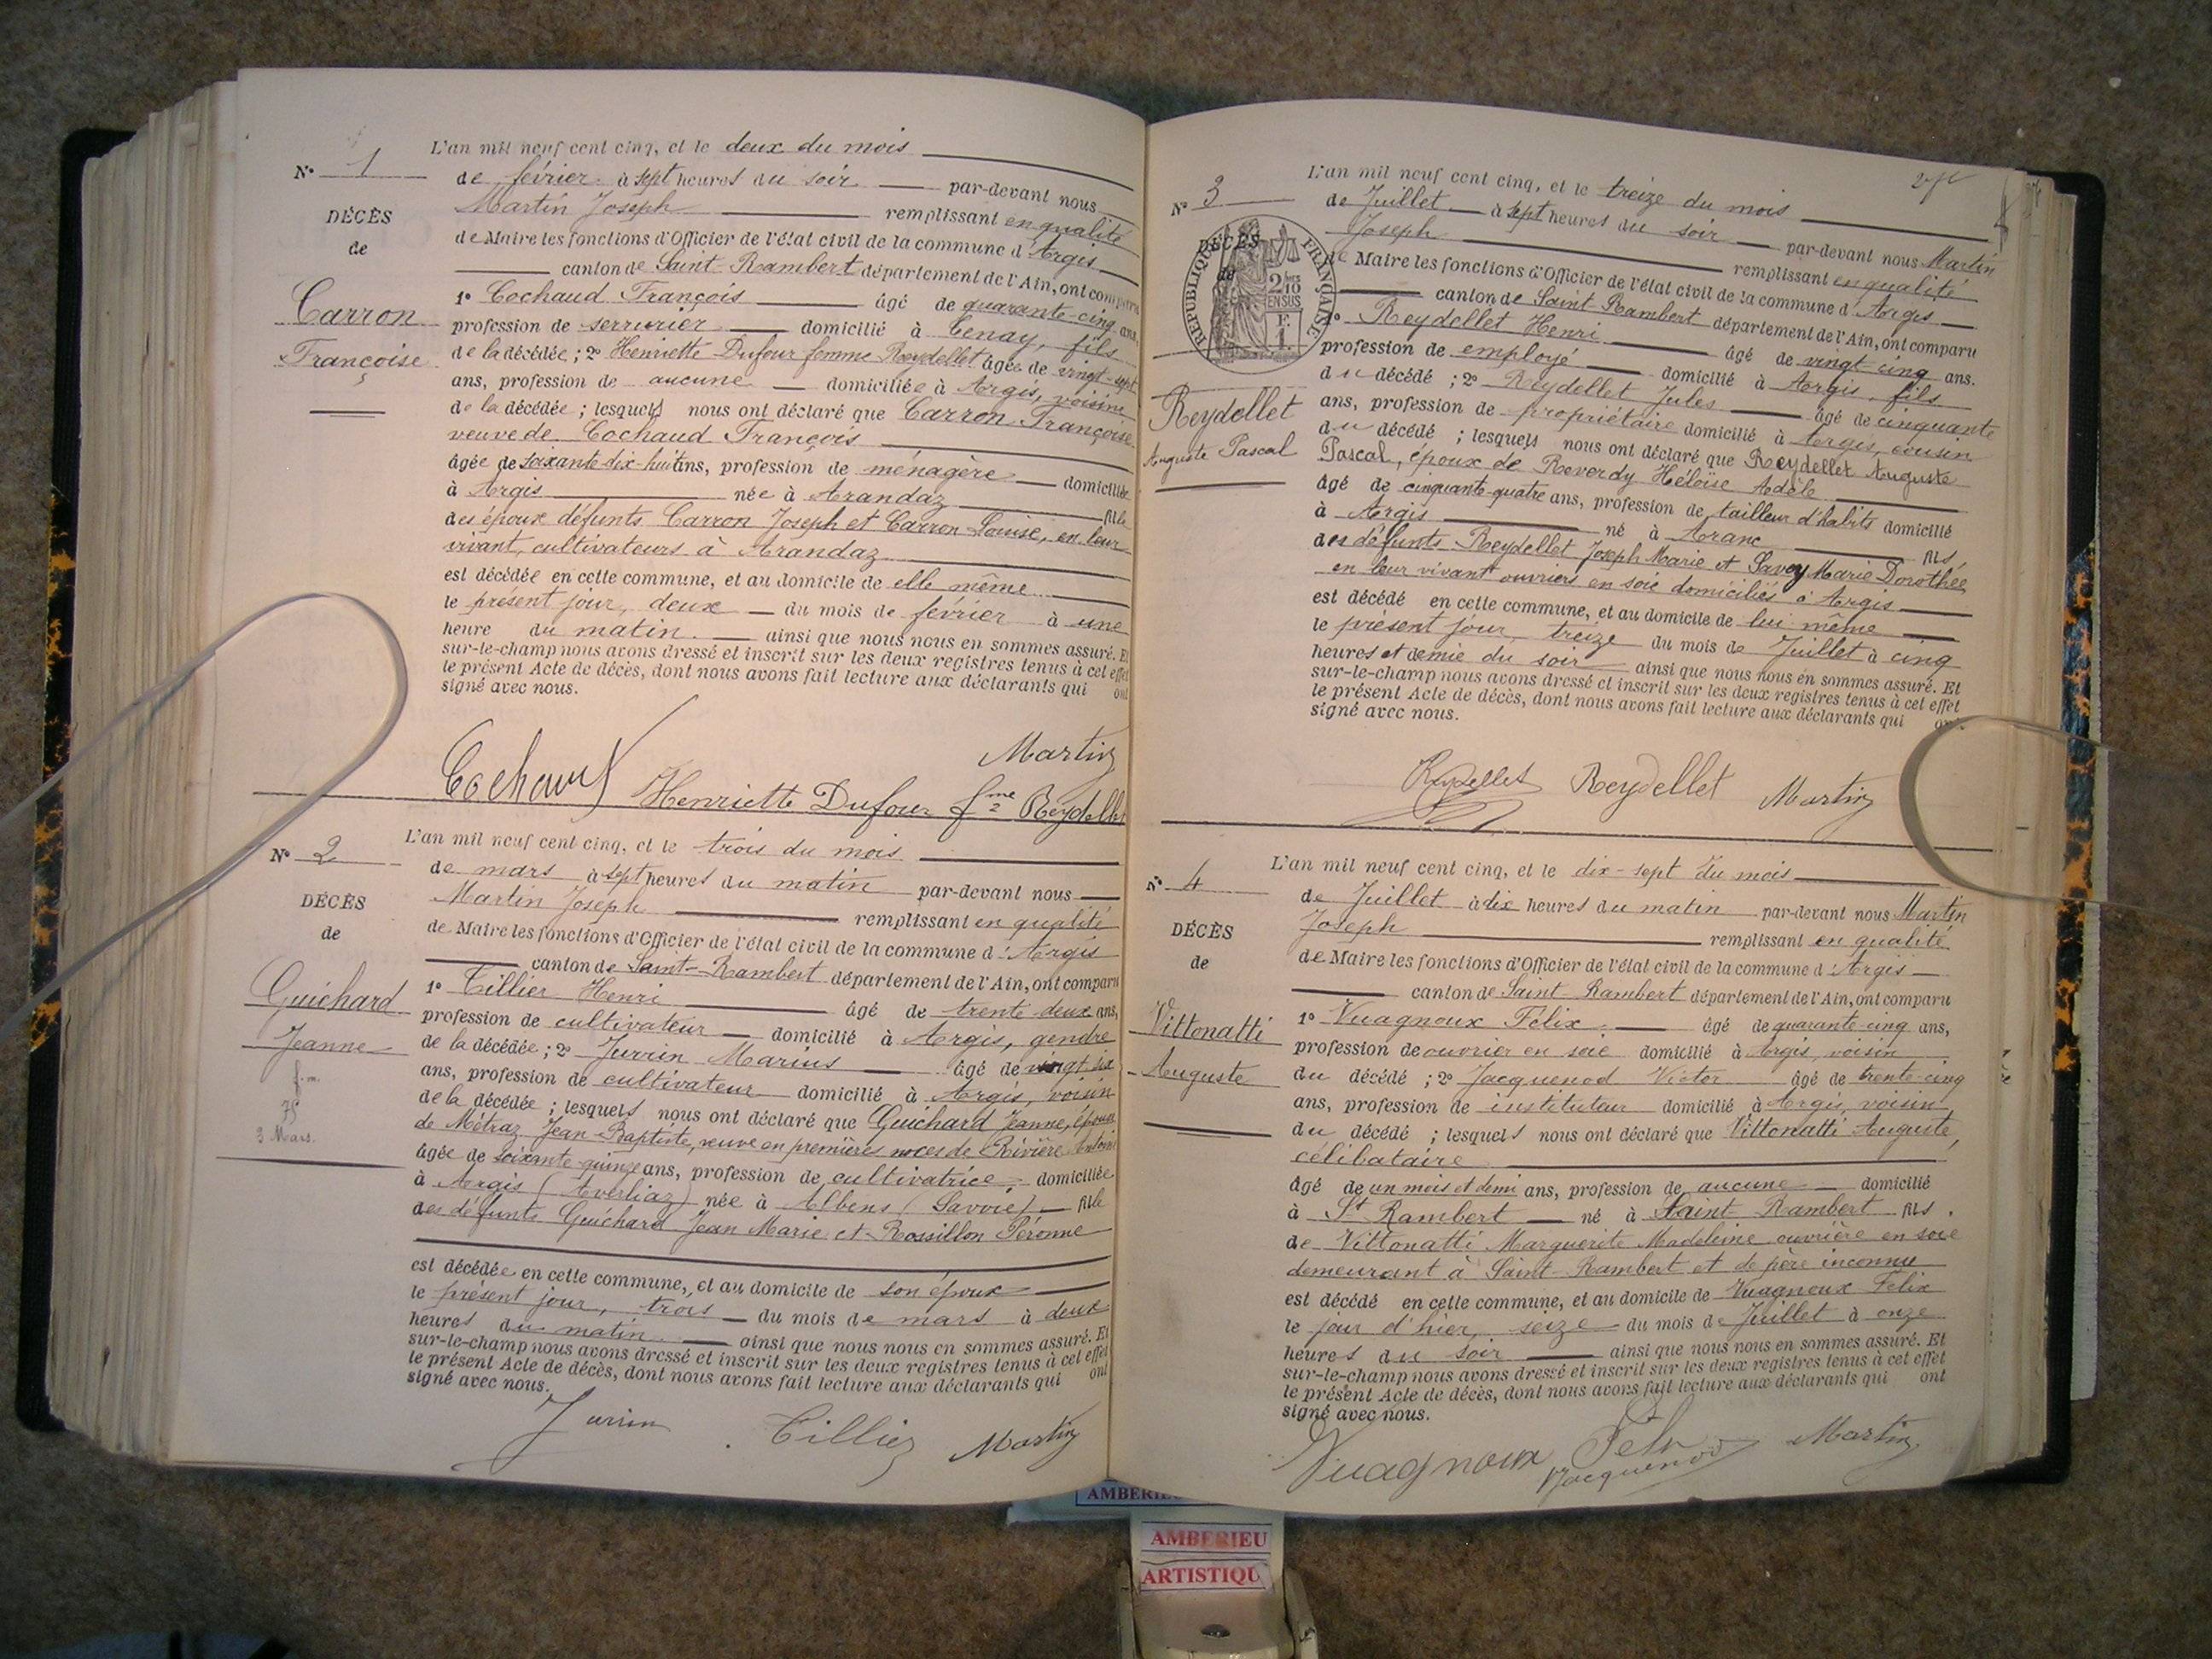 L'an mil neuf cent cinq, et le deux du mois
N° 1
de février à sept heures du soir par-devant nous
Martin Joseph remplissant en qualité
DÉCÈS
de Maire les fonctions d'Officier de l'état civil de la commune d'Argis
de
canton de Saint-Rambert département de l'Ain, ont comparu
1° Cochaud François âgé de quarante-cinq ans,
Carron
profession de serrurier domicilié à Tenay, fils
Françoise
de la décédée ; 2° Henriette Dufour femme Reydellet âgée de vingt-sept
ans, profession de aucune domiciliée à Argis, voisine
de la décédée ; lesquels nous ont déclaré que Carron Françoise
veuve de Cochaud François
âgée de soixante-dix-huit ans, profession de ménagère domiciliée
à Argis née à Arandaz fille
des époux défunts Carron Joseph et Carron Louise, en leur
vivant, cultivateurs à Arandaz
est décédée en cette commune, et au domicile de elle même
le présent jour, deux du mois de février à une
heure du matin. ainsi que nous nous en sommes assuré. Et
sur-le-champ nous avons dressé et inscrit sur les deux registres tenus à cet effet
le présent Acte de décès, dont nous avons fait lecture aux déclarants qui ont
signé avec nous.
Martin
Cochaud Henriette Dufour fme Reydellet
L'an mil neuf cent cinq, et le trois du mois
N° 2
de mars à sept heures du matin par-devant nous
Martin Joseph remplissant en qualité
DÉCÈS
de Maire les fonctions d'Officier de l'état civil de la commune d'Argis
de
canton de Saint-Rambert département de l'Ain, ont comparu
1° Tillier Henri âgé de trente-deux ans,
Guichard
profession de cultivateur domicilié à Argis, gendre
Jeanne
de la décédée ; 2° Jurrin Marius âgé de vingt six
f. m.
ans, profession de cultivateur domicilié à Argis, voisin
75
de la décédée ; lesquels nous ont déclaré que Guichard Jeanne, épouse
3 Mars.
de Métraz Jean-Baptiste, veuve en premières noces de Rivière Antoine
âgée de soixante-quinze ans, profession de cultivatrice, domiciliée
à Argis (Averliaz) née à Albens (Savoie) fille
des défunts Guichard Jean Marie et Rossillon Péronne
est décédée en cette commune, et au domicile de son époux
le présent jour, trois du mois de mars à deux
heures du matin. ainsi que nous nous en sommes assuré. Et
sur-le-champ nous avons dressé et inscrit sur les deux registres tenus à cet effet
le présent Acte de décès, dont nous avons fait lecture aux déclarants qui ont
signé avec nous.
Jurrin Tillier Martin
L'an mil neuf cent cinq, et le treize du mois
N° 3
de Juillet à sept heures du soir par-devant nous Martin
Joseph remplissant en qualité
DÉCÈS
de
RÉPUBLIQUE FRANÇAISE
2/10 EN SUS
de Maire les fonctions d'Officier de l'état civil de la commune d'Argis
canton de Saint-Rambert département de l'Ain, ont comparu
1° Reydellet Henri âgé de vingt-cinq ans.
profession de employé domicilié à Argis, fils
du décédé ; 2° Reydellet Jules âgé de cinquante
Reydellet
ans, profession de propriétaire domicilié à Argis, cousin
Auguste Pascal
du décédé ; lesquels nous ont déclaré que Reydellet Auguste
Pascal, époux de Reverdy Héloïse Adèle
âgé de cinquante-quatre ans, profession de tailleur d'habits domicilié
à Argis né à Aranc fils
des défunts Reydellet Joseph Marie et Savey Marie Dorothée
en leur vivant ouvriers en soie domiciliés à Argis
est décédé en cette commune, et au domicile de lui même
le présent jour, treize du mois de Juillet à cinq
heures et demie du soir ainsi que nous nous en sommes assuré. Et
sur-le-champ nous avons dressé et inscrit sur les deux registres tenus à cet effet
le présent Acte de décès, dont nous avons fait lecture aux déclarants qui ont
signé avec nous.
Reydellet Reydellet Martin
L'an mil neuf cent cinq, et le dix-sept du mois
N° 4
de Juillet à dix heures du matin par-devant nous Martin
Joseph remplissant en qualité
DÉCÈS
de Maire les fonctions d'Officier de l'état civil de la commune d'Argis
de
canton de Saint-Rambert département de l'Ain, ont comparu
Vittonatti
1° Vuagnoux Félix âgé de quarante-cinq ans,
profession de ouvrier en soie domicilié à Argis, voisin
Auguste
du décédé ; 2° Jacquenod Victor âgé de trente-cinq
ans, profession de instituteur domicilié à Argis, voisin
du décédé ; lesquels nous ont déclaré que Vittonatti Auguste,
célibataire
âgé de un mois et demi ans, profession de aucune domicilié
à St Rambert né à Saint-Rambert fils
de Vittonatti Marguerite Madeleine ouvrière en soie
demeurant à Saint-Rambert et de père inconnu
est décédé en cette commune, et au domicile de Vuagnoux Félix
le jour d'hier, seize du mois de Juillet à onze
heures du soir ainsi que nous nous en sommes assuré. Et
sur-le-champ nous avons dressé et inscrit sur les deux registres tenus à cet effet
le présent Acte de décès, dont nous avons fait lecture aux déclarants qui ont
signé avec nous.
Vuagnoux Felix Jacquenod Martin
AMBERIEU
ARTISTIQU